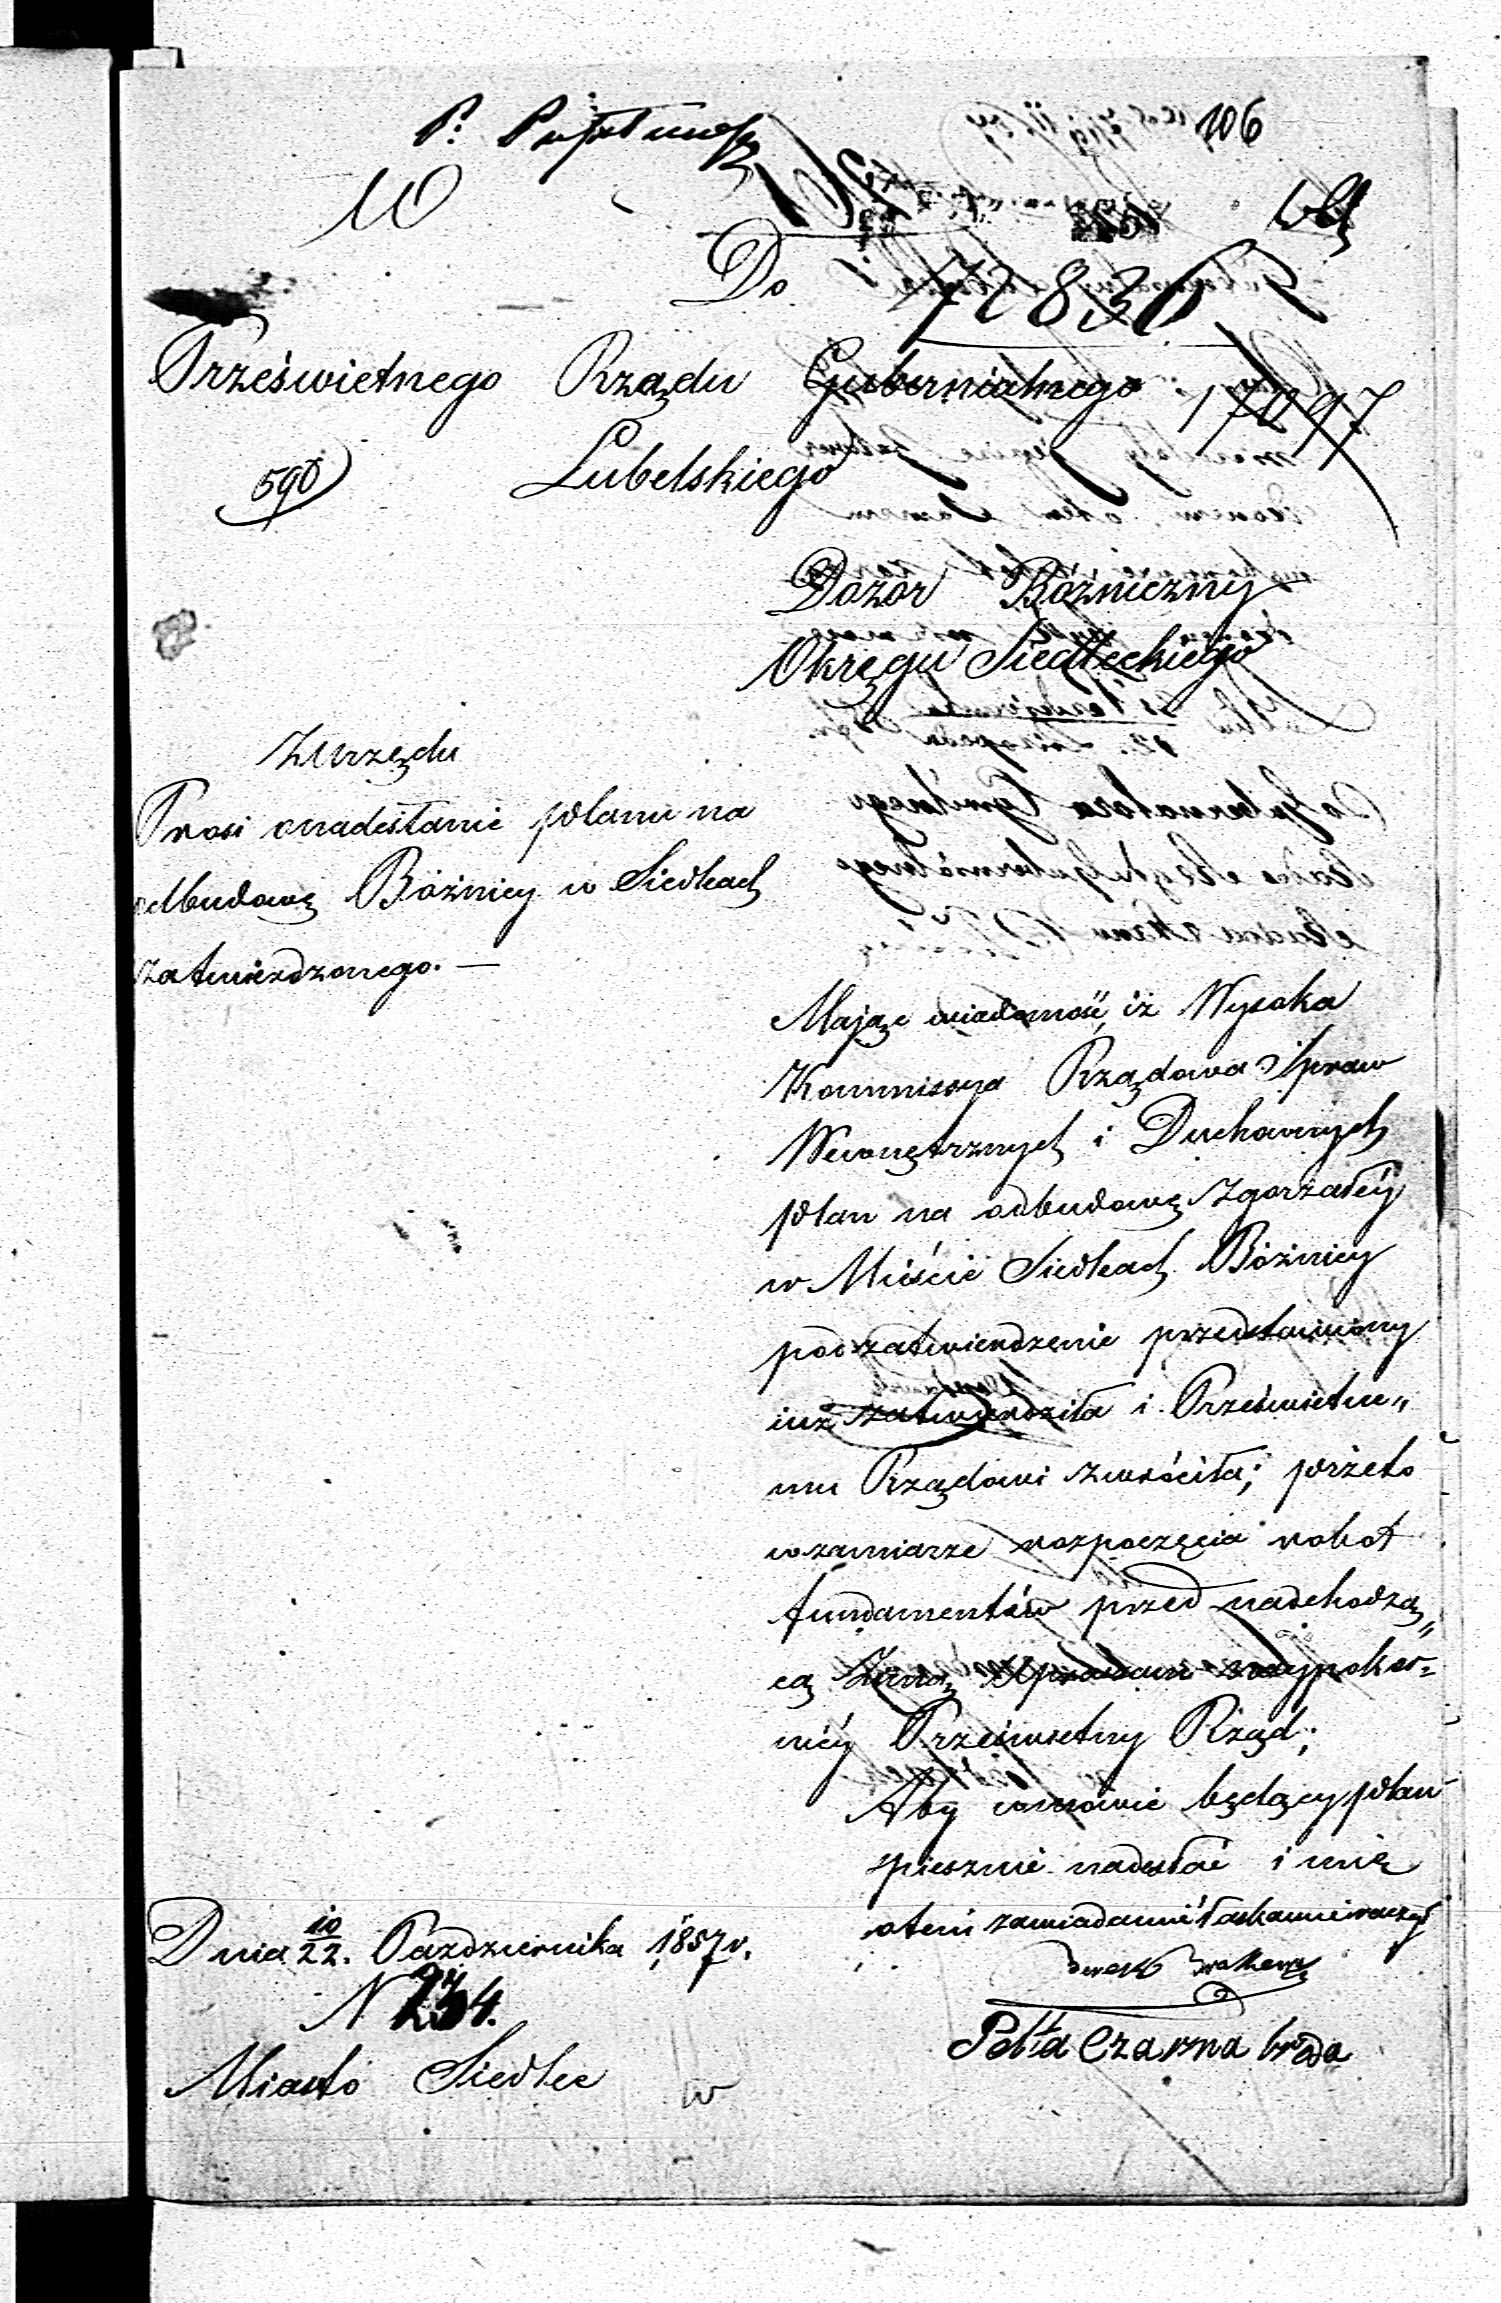 106
Do
72836
Prześwietnego Rządu Gubernialnego
17097
Lubelskiego
590
Dozór Bóżniczny
Okręgu Siedleckiego
Z Urzędu
Prosi o nadesłanie planu na
odbudowę Bóżnicy w Siedlcach
zatwierdzonego. —
Mając wiadomość, iż Wysoka
Kommissya Rządowa Spraw
Wewnętrznych i Duchownych
plan na odbudowę zgorzałéy
w Mieście Siedlcach Bóżnicy
pod zatwierdzenie przedstawiony
iuż zatwierdziła i Prześwietne„
mu Rządowi zwróciła; przeto
w zamiarze rozpoczęcia robot
fundamentów przed nadchodzą„
cą Zimą Upraszam naypokor=
niéy Prześwietny Rząd;
Aby w mowie będący plan
spiesznie nadesłać i mię
otem zawiadamić łaskawie raczył
Dnia 10/22. Października 1857 r.
N 234.
Miasto Siedlce
Pelta Czarna broda